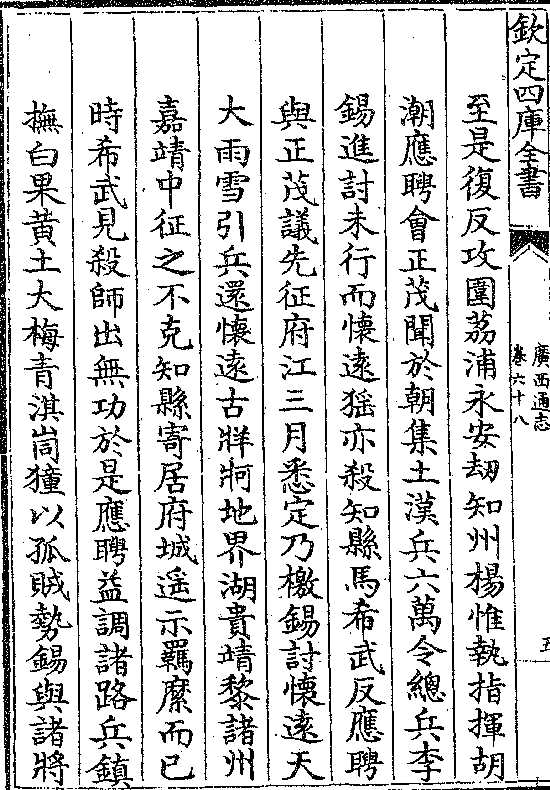 欽定四庫全書
廣西通志
卷六十八
五
至是復反攻圍荔浦永安刼知州楊惟執指揮胡
潮應聘會正茂聞於朝集土漢兵六萬令總兵李
錫進討未行而懷遠猺亦殺知縣馬希武反應聘
與正茂議先征府江三月悉定乃檄錫討懷遠天
大雨雪引兵還懷遠古牂牁地界湖貴靖黎諸州
嘉靖中征之不克知縣寄居府城遥示羈縻而已
時希武見殺師出無功於是應聘益調諸路兵鎮
撫白果黄土大梅青淇峝獞以孤賊勢錫與諸將